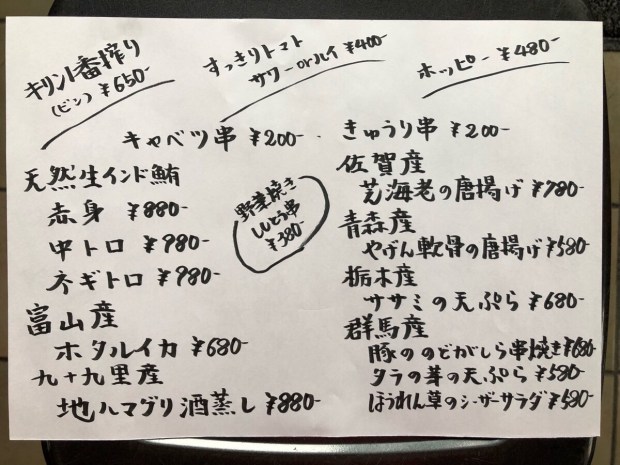 キリン一番搾り
(ビン) ¥650-
すっきりトマト
サワー orハイ ¥400-
ホッピー ¥480-
キャベツ串 ¥200-
きゅうり串 ¥200-
天然生インド鮪
赤身 ¥880-
中トロ ¥980-
ネギトロ ¥980-
富山産
ホタルイカ ¥680-
九十九里産
地ハマグリ酒蒸し ¥880-
野菜焼き
ししとう串
¥380-
佐賀産
芝海老の唐揚げ ¥780-
青森産
やげん軟骨の唐揚げ ¥580-
栃木産
ササミの天ぷら ¥680-
群馬産
豚ののどがしら串焼き ¥680-
タラの芽の天ぷら ¥580-
ほうれん草のシーザーサラダ ¥580-